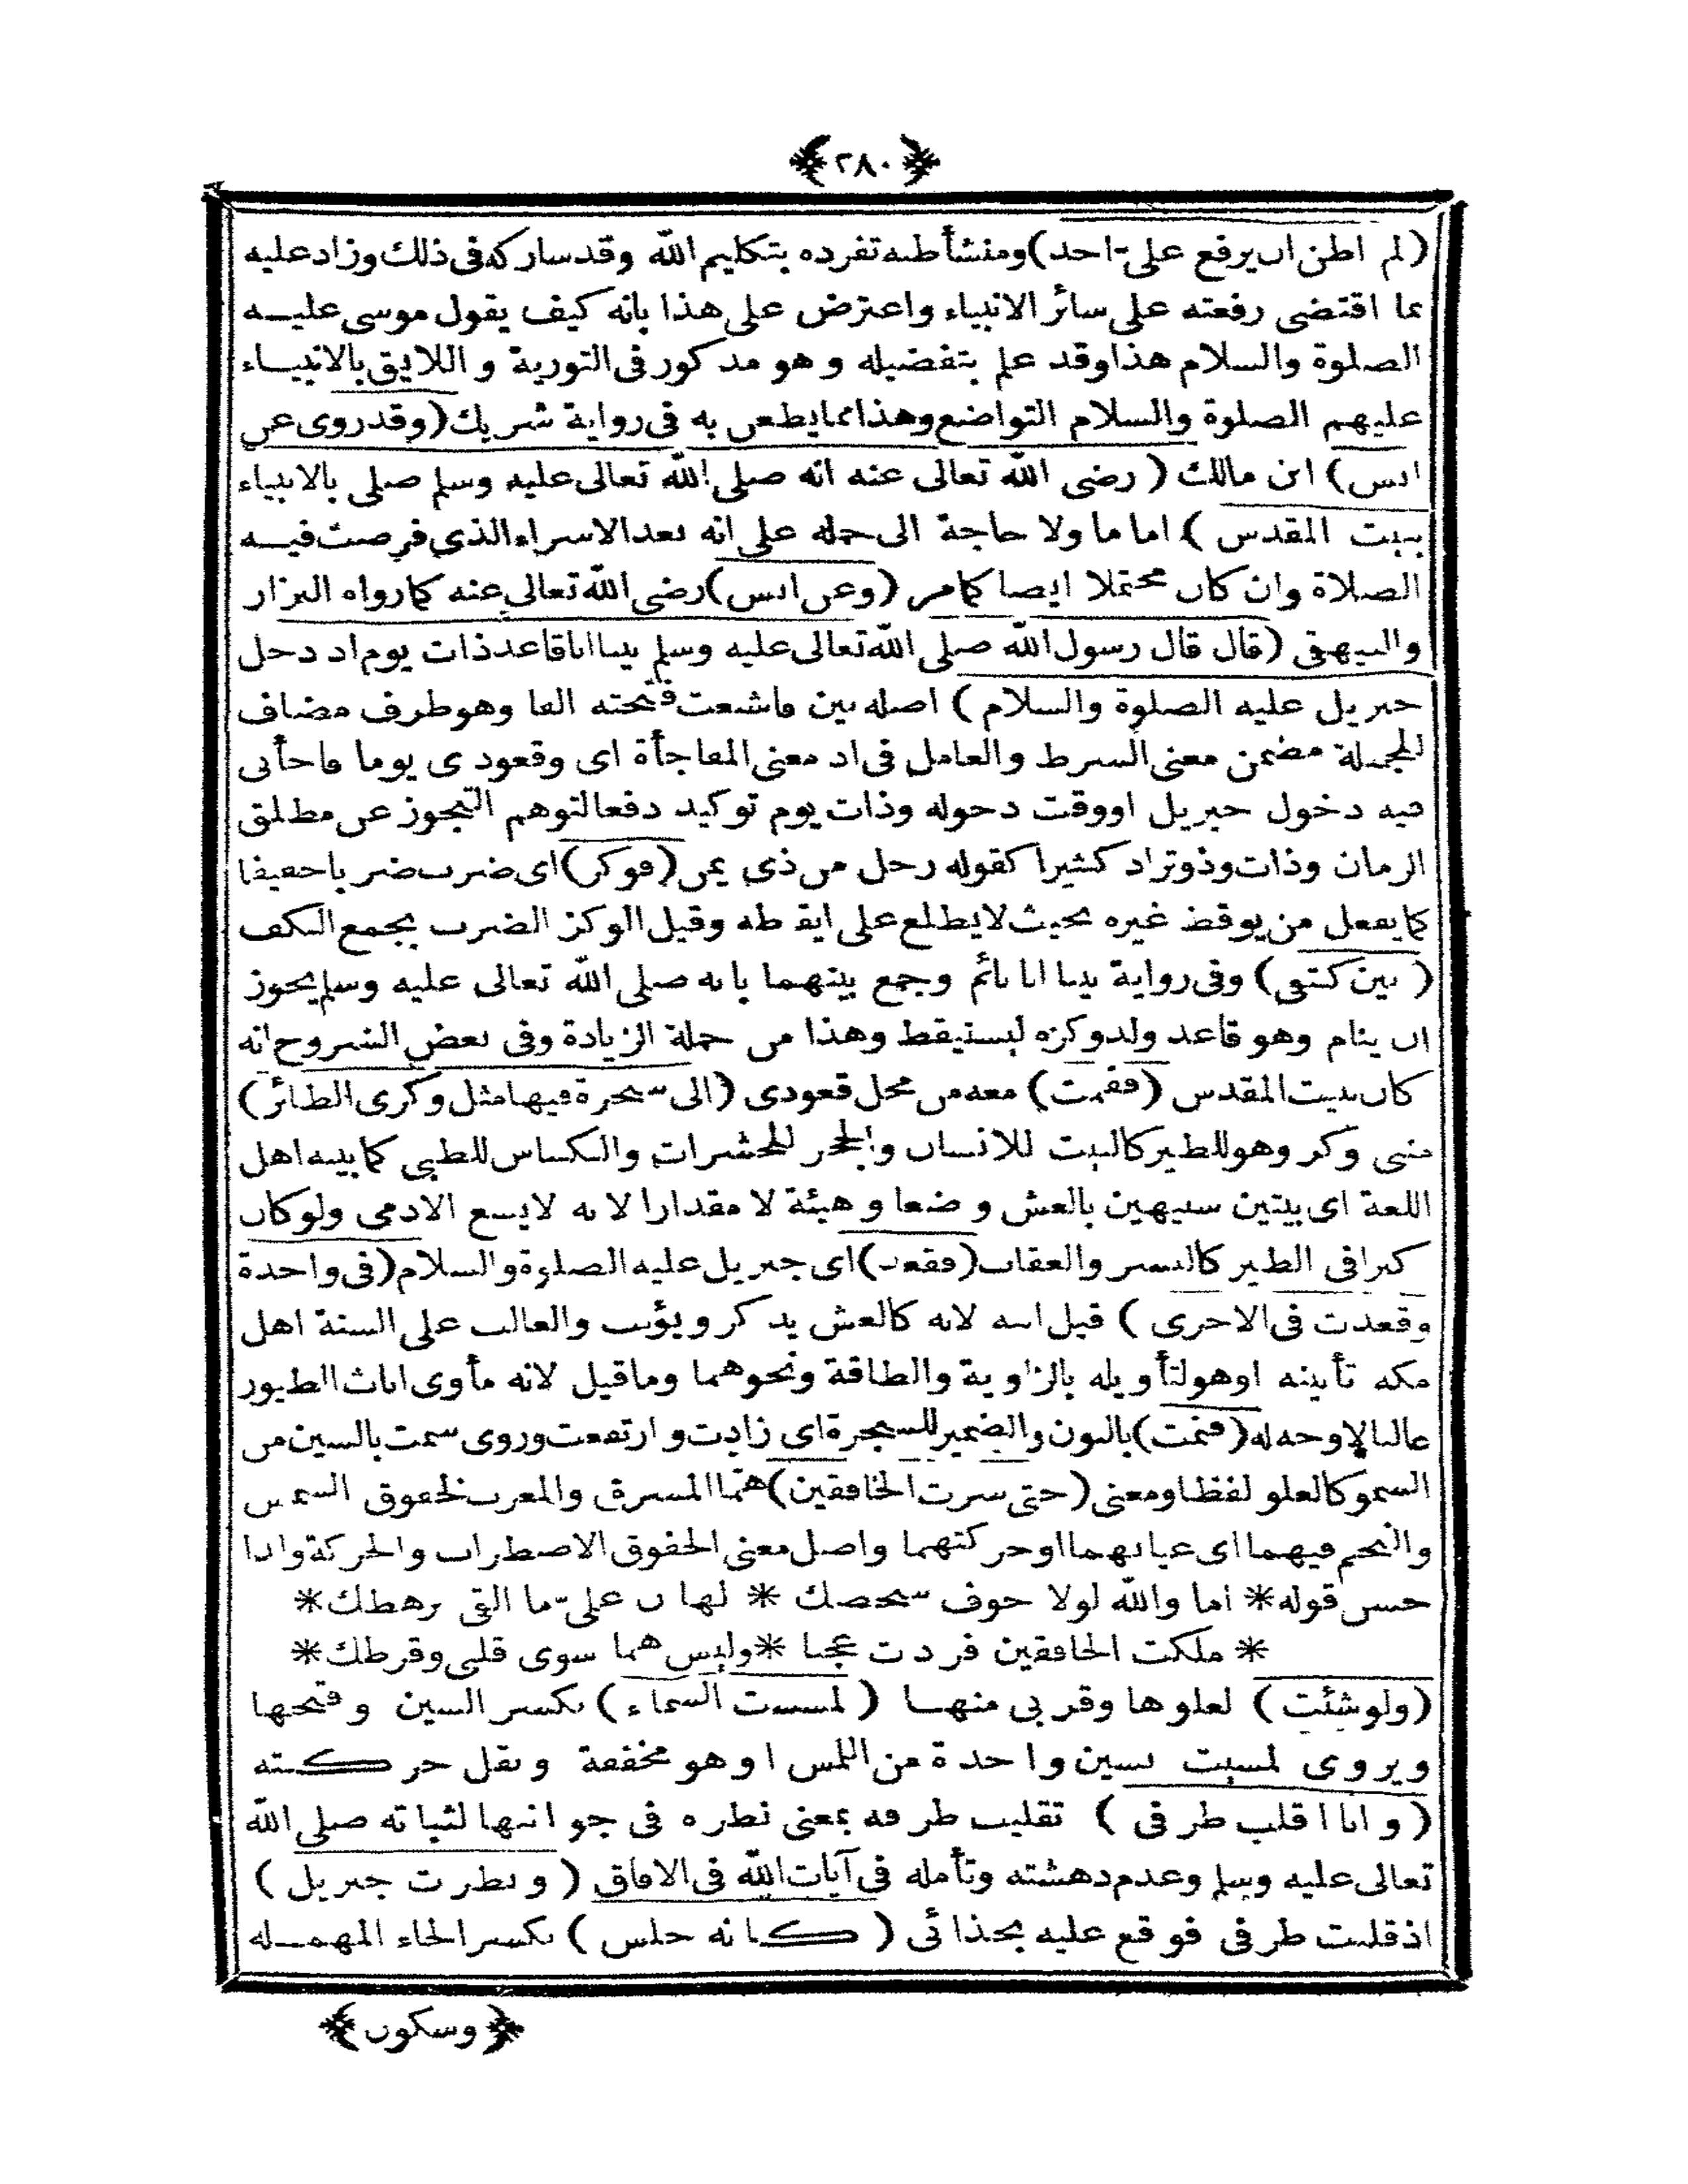 ﴿٢٨٠﴾
(لم اظن ان يرفع علىّ احد) ومنشأ ظنه تفرده بتكليم الله وقد ساركه فى ذلك وزاد عليه
بما اقتضى رفعته على سائر الانبياء واعترض على هذا بانه كيف يقول موسى عليه
الصلوة والسلام هذا وقد علم بتفضيله وهو مذكور فى التورية واللايق بالانبياء
عليهم الصلوة والسلام التواضع وهذا مما يطعن به فى رواية شريك (وقد روى عن
انس) ابن مالك (رضى الله تعالى عنه انه صلى الله تعالى عليه وسلم صلى بالانبياء
ببيت المقدس) اماما ولا حاجة الى حمله على انه بعد الاسراء الذى فرضت فيه
الصلاة وان كان محتملا ايضا كما مر (وعن انس) رضى الله تعالى عنه كما رواه البزار
والبيهقى (قال قال رسول الله صلى الله تعالى عليه وسلم بينا انا قاعد ذات يوم اذ دخل
جبريل عليه الصلوة والسلام) اصله بين فاشبعت فتحته الفا وهو ظرف مضاف
للجملة مضمن معنى الشرط والعامل فى اذ معنى المفاجأة اى وقعودى يوما فاجأنى
فيه دخول جبريل او وقت دخوله وذات يوم توكيد دفعا لتوهم التجوز عن مطلق
الزمان وذات وذو تزاد كثيرا كقوله رجل من ذى يمن (فوكز) اى ضرب ضربا خفيفا
كما يفعل من يوقظ غيره بحيث لا يطلع على ايقاظه وقيل الوكز الضرب بجمع الكف
(بين كتفى) وفى رواية بينا انا نائم وجمع بينهما بانه صلى الله تعالى عليه وسلم يجوز
ان ينام وهو قاعد ولدو كزه ليستيقظ وهذا من جملة الزيادة وفى بعض الشروح انه
كان ببيت المقدس (فقمت) معه من محل قعودى (الى شجرة فيها مثل وكرى الطائر)
مثنى وكر وهو للطير كالبيت للانسان والجحر للحشرات والكناس للظبى كما بينه اهل
اللغة اى بيتين شبيهين بالعش وضعا وهيئة لا مقدارا لانه لا يسع الادمى ولو كان
كبرا فى الطير كالنسر والعقاب (فقعد) اى جبريل عليه الصلوة والسلام (فى واحدة
وقعدت فى الاخرى) قيل انثه لانه كالعش يذكر ويؤنث والغالب على السنة اهل
مكة تأنيثه او هو لتأويله بالزاوية والطاقة ونحوهما وما قيل لانه مأوى اناث الطيور
غالبا لا وجه له (فنمت) بالنون والضمير للشجرة اى زادت وارتفعت وروى سمت بالسين من
السمو كالعلو لفظا ومعنى (حتى سدت الخافقين) هما المشرق والمغرب لخفوق الشمس
والنجم فيهما اى غيابهما او حركتهما واصل معنى الخفوق الاضطراب والحركة وانا
حسن قوله * اما والله لولا خوف شخصك * لهان علىّ ما القى برهطك *
* ملكت الخافقين فزدت عجبا * وليس هما سوى قلبى وقرطك *
(ولو شئت) لعلوها وقربى منها (لمسست السماء) بكسر السين وفتحها
ويروى لمسبت بسين واحدة من اللمس او هو مخففة ونقل حركته
(وانا اقلب طرفى) تقليب طرفه بمعنى نظره فى جوانبها لثباته صلى الله
تعالى عليه وسلم وعدم دهشته وتأمله فى آيات الله فى الافاق (ونظرت جبريل)
اذ قلبت طرفى فوقع عليه بحذائى (كانه حلس) بكسر الحاء المهمله
﴿وسكون﴾